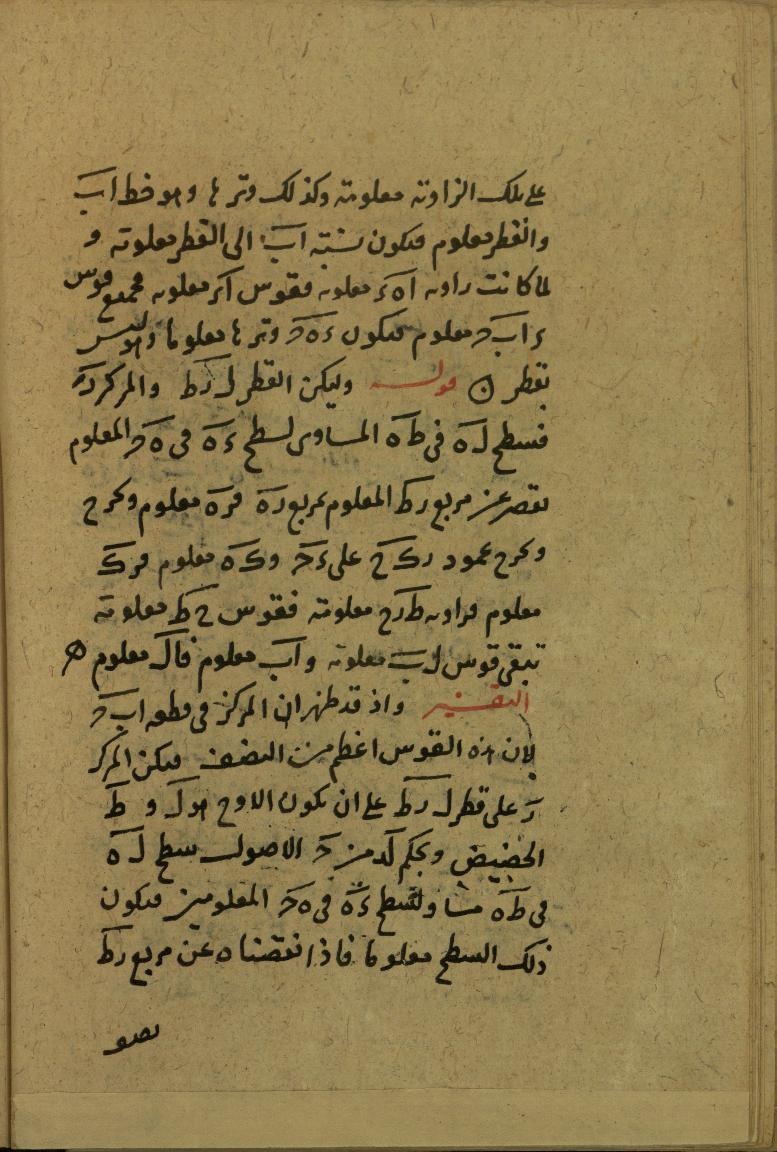 على تلك الزاوية معلومة وكذلك وترها وهو خط اب
والقطر معلوم فيكون نسبة اب الى القطر معلومة و
لما كانت زاوية ا ه ء معلومة فقوس ا ء معلومة فجميع قوس
ء ا ب ح معلوم فيكون ء ه ح وترها معلوما وليس
بقطر ن قوله وليكن القطر ل ر ط والمركز ر
فسطح ل ه في ط ه المساوى لسطح ء ه في ه ح المعلوم
نقص عن مربع ر ط المعلوم مربع ر ه فره معلوم ونخرج
ونخرج عمود ر ك ح على ء ح و ك ه معلوم فرك
معلوم فزاوية ط ر ح معلومة فقوس ح ط معلومة
تبقى قوس ل ب معلومة و اب معلوم فال معلوم ه
التفسير واذ قد ظهر ان المركز في قطعة اب ح
لان هذه القوس اعظم من النصف فيكن المركز
ر على قطر ل ر ط على ان يكون الاوج هو ل و ط
الحضيض وبحكم لد من ح الاصول سطح ل ه
في ط ه مساو لسطح ء ه في ه ح المعلومين فيكون
ذلك السطح معلوما فاذا نقصناه عن مربع ر ط